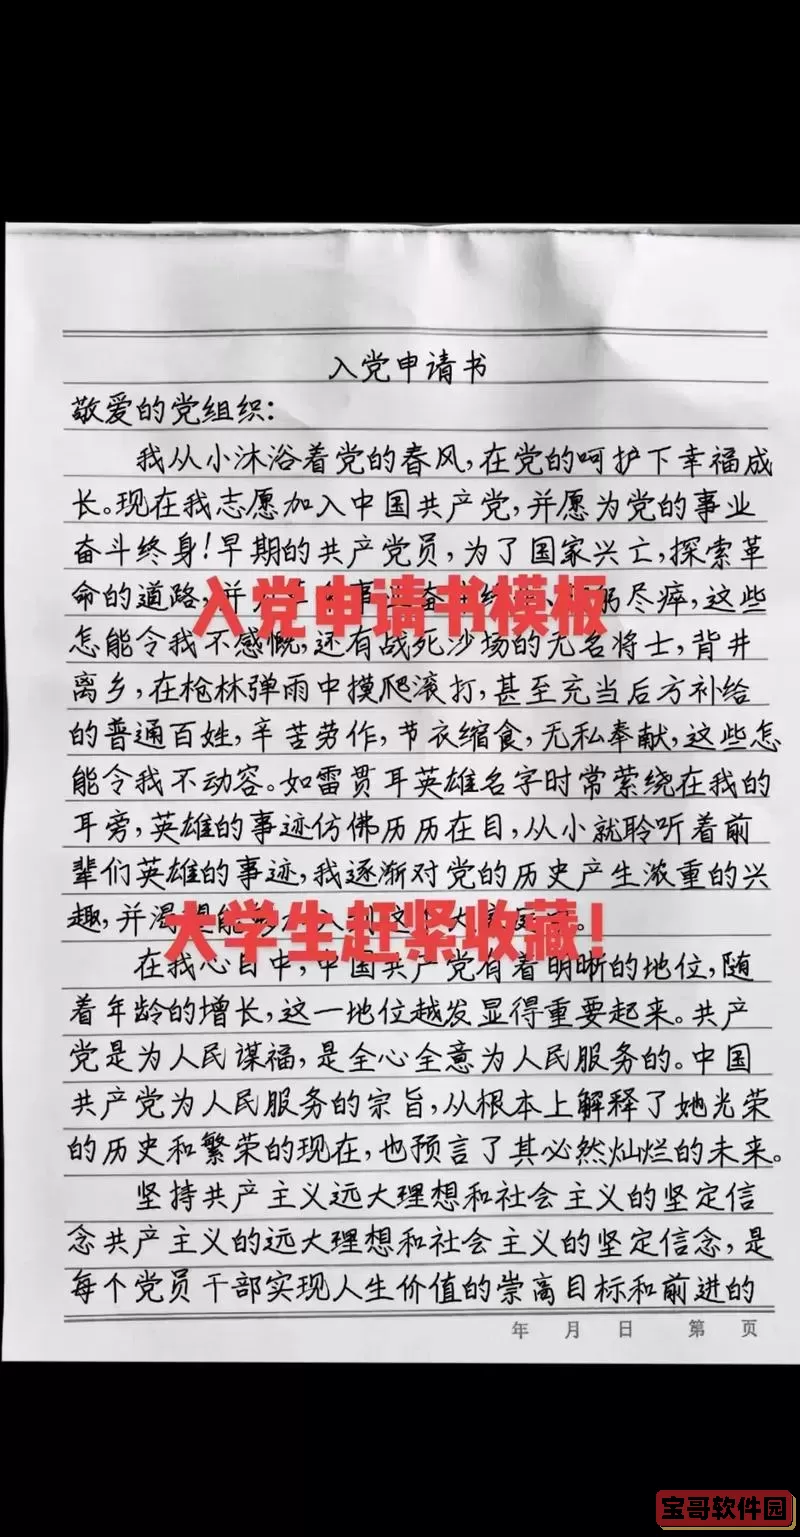 入党申请书
敬爱的党组织：
我从小沐浴着党的春风，在党的呵护下幸福成
长。现在我志愿加入中国共产党，并愿为党的事业
奋斗终身！早期的共产党员，为了国家兴亡，探索革
命的道路，并 尽瘁，这些
入党申请书模板
怎能令我不感慨，还有战死沙场的无名将士，背井
离乡，在枪林弹雨中摸爬滚打，甚至充当后方补给
的普通百姓，辛苦劳作，节衣缩食，无私奉献，这些怎
能令我不动容。如雷贯耳英雄名字时常萦绕在我的
耳旁，英雄的事迹仿佛历历在目，从小就聆听着前
辈们英雄的事迹，我逐渐对党的历史产生浓重的兴
趣，并渴
大学生赶紧收藏！
在我心目中，中国共产党有着明晰的地位，随
着年龄的增长，这一地位越发显得重要起来。共产
党是为人民谋福，是全心全意为人民服务的。中国
共产党为人民服务的宗旨，从根本上解释了她光荣
的历史和繁荣的现在，也预言了其必然灿烂的未来。
坚持共产主义远大理想和社会主义的坚定信
念共产主义的远大理想和社会主义的坚定信念，是
每个党员干部实现人生价值的崇高目标和前进的
年 月 日 第 页
宝哥软件园